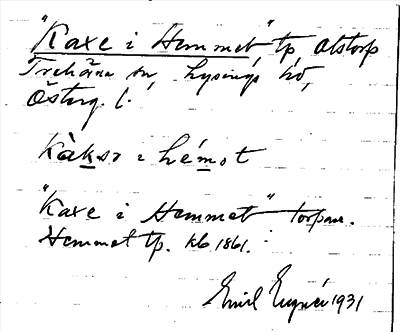 "Kaxe i Hemmet" tp, Olstorp
Trehörna sn, Lysings hd,
Österg. l.
kàksɔ i hémɔt
"Kaxe i Hemmet" torpare.
Hemmet tp. kb 1861.
Emil 1931